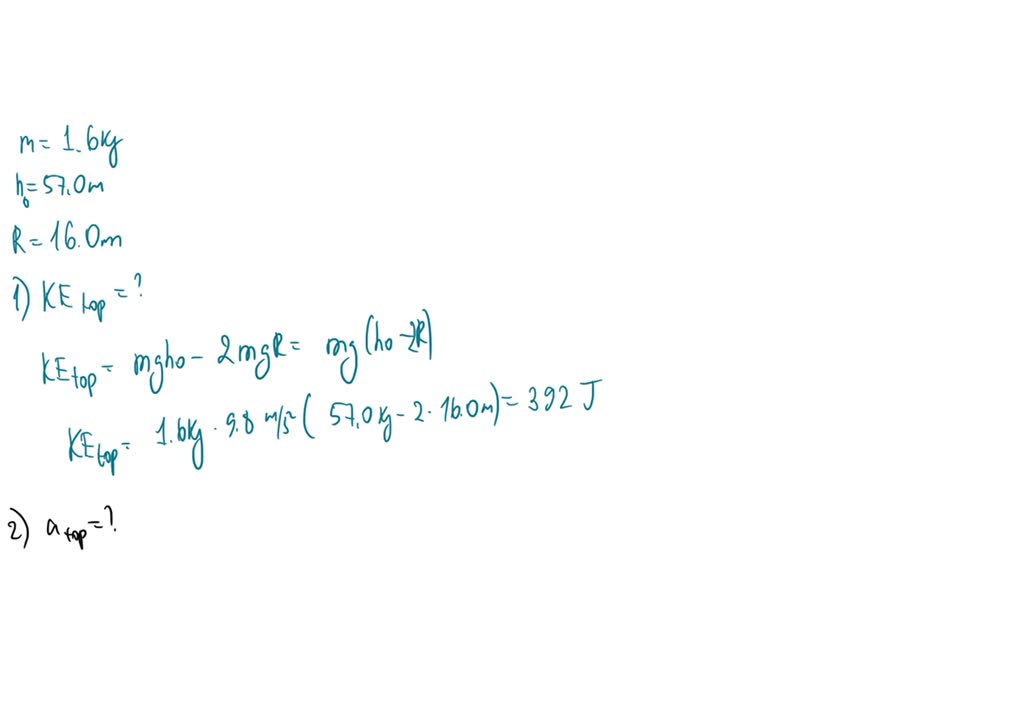 m = 1.6kg
h₀ = 57.0m
R = 16.0m
1) KE top = ?
KEtop = mgh₀ - 2mgR = mg(h₀ - 2R)
KEtop = 1.6kg · 9.8 m/s² ( 57.0 kg - 2 · 16.0m) = 392 J
2) a top = ?